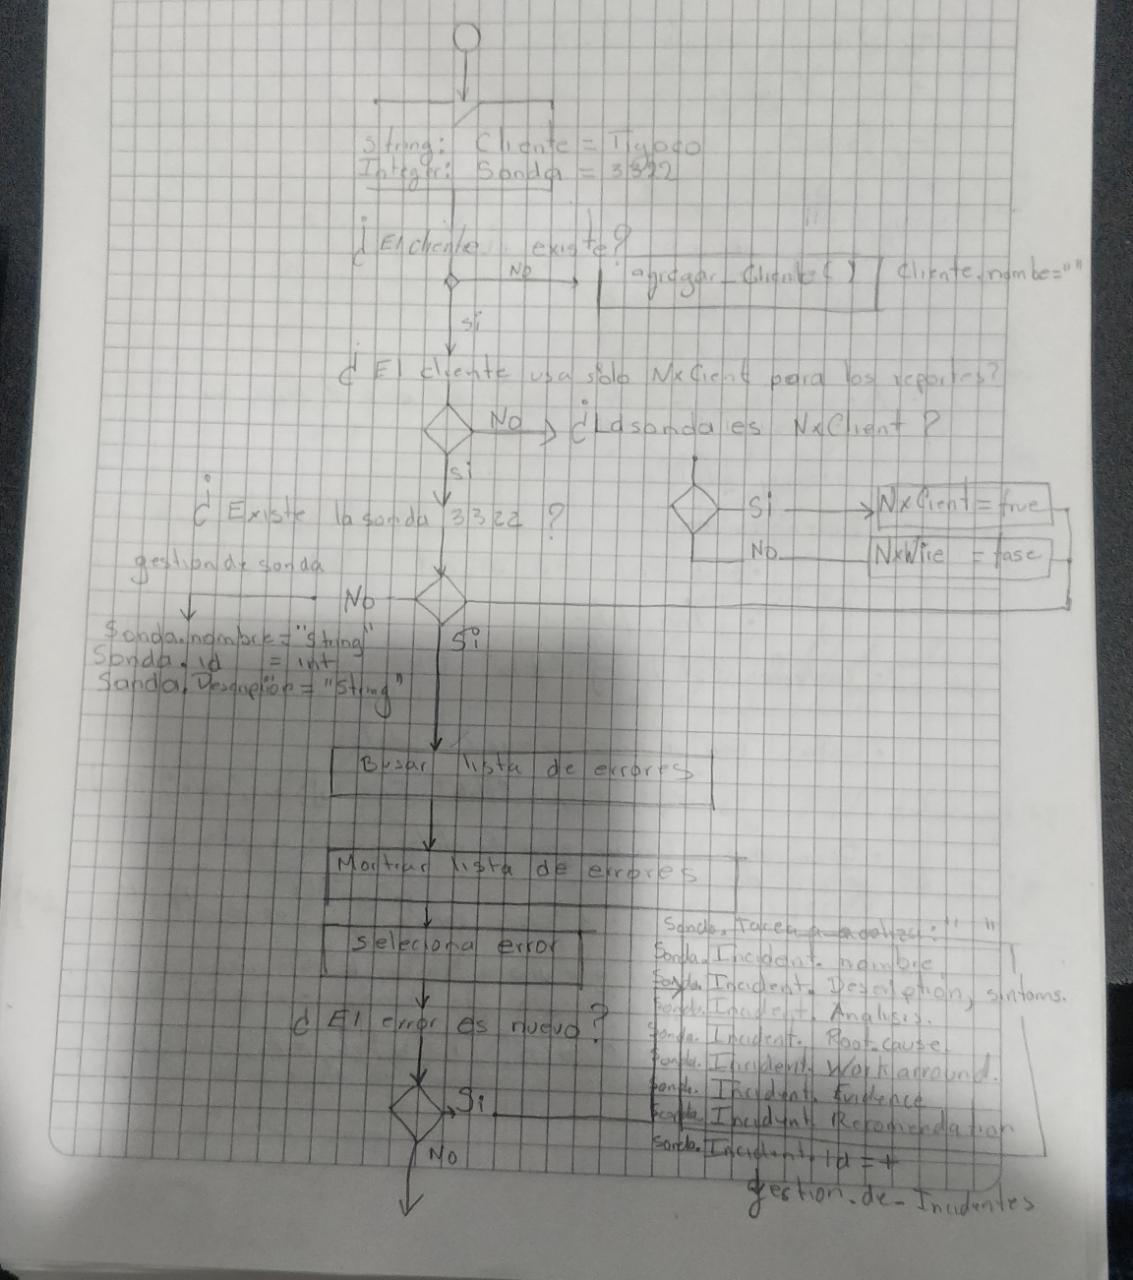 String: Cliente = Tigo
Integer: Sonda = 3322
¿El cliente existe?
No
agregar_cliente( )
Cliente.nombe=""
si
¿El cliente usa solo NxClient para los reportes?
No
¿La sonda es NxClient ?
si
Si
NxClient = true
¿ Existe la sonda 3322 ?
No
NxWire = fase
gestion de sonda
No
Si
Sonda.nombre = "String"
Sonda.id = int
Sonda. = "String"
Busar lista de errores
Mostrar lista de errores
Seleciona error
Sonda. " "
Sonda.Incident. nombre
Sonda.Incident. Description, sintoms.
Sonda.Incident. Analisis.
¿ El error es nuevo?
Sonda. Incident. Root_cause
Sonda. Incident. Workarround.
Sonda. Incident. Evidence
Si
Sonda. Incident. Recomendation
No
Sonda. Incident. id = +
gestion-de-Incidentes